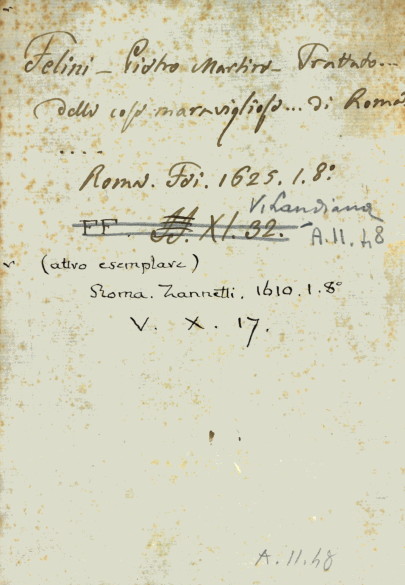 Felini - Pietro Martire - Trattato...
delle cose maravigliose... di Roma
....
Roma. Fei. 1625. 1. 8º
V. Landiana
FF. XI. 32.
A. 11. 48
(altro esemplare)
Roma. Zannetti. 1610. 1. 8º
V. X. 17.
A. 11. 48